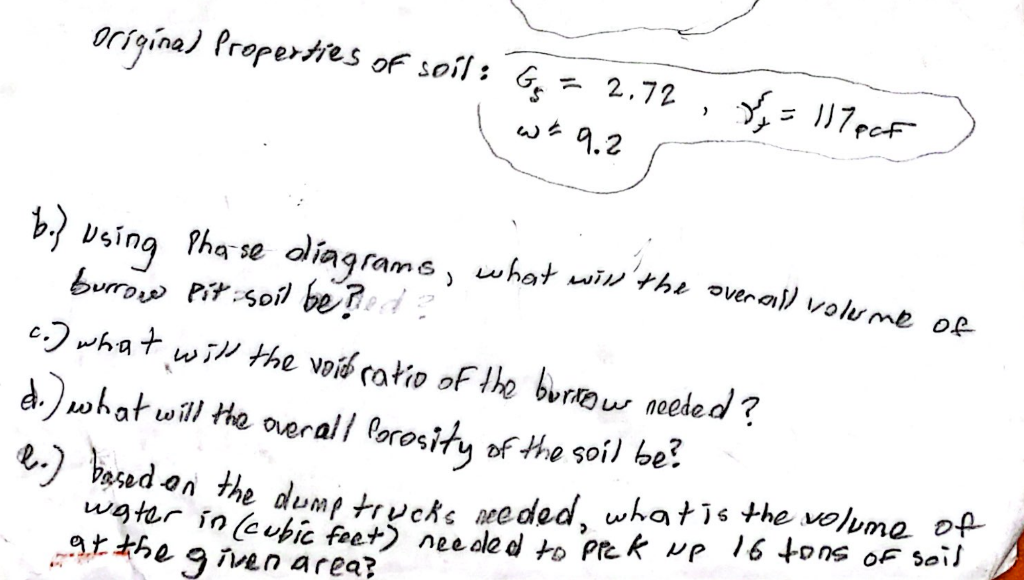 Original Properties of soil: Gs = 2.72 , γt = 117 pcf
w = 9.2
b.) Using Phase diagrams, what will the overall volume of
burrow Pit soil be?
c.) what will the void ratio of the burrow needed?
d.) what will the overall Porosity of the soil be?
e.) based on the dump trucks needed, what is the volume of
water in (cubic feet) needed to pick up 16 tons of soil
at the given area?